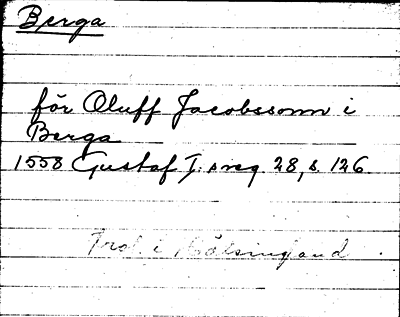 Berga
för Oluff Jacobssonn i
Berga
1558 Gustaf I:s reg. 28, s. 126.
Trol i Hälsingland